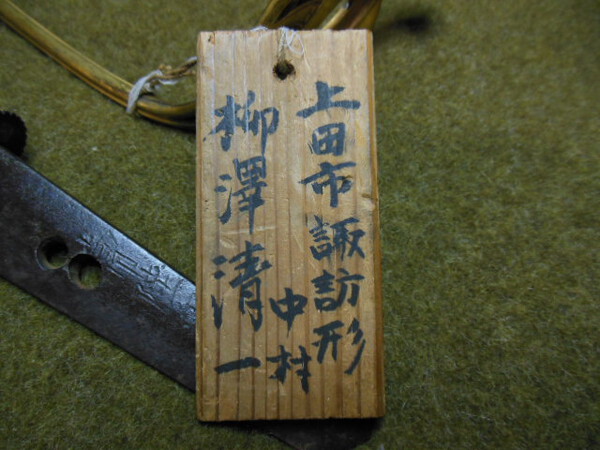 上田市諏訪形
中村
柳澤清一